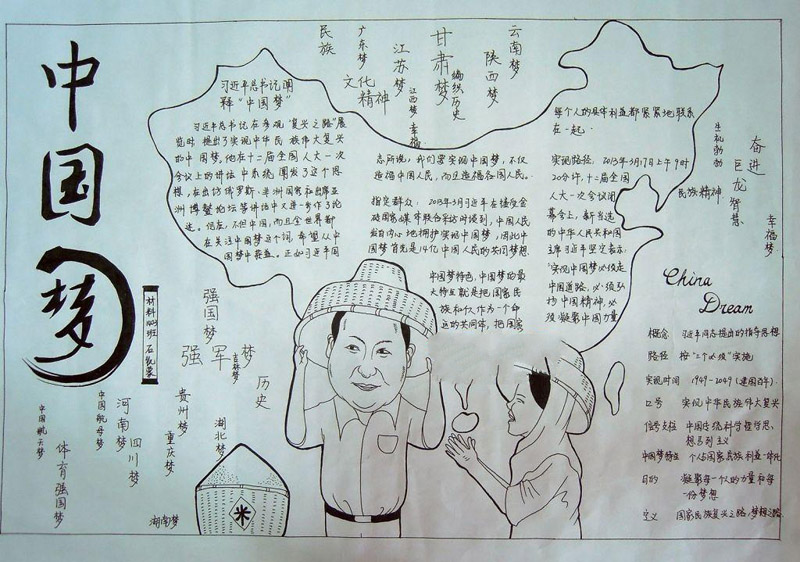 中国梦
材料1103班
民族
广东梦
文化
精神
江苏梦
江西梦 幸福
甘肃梦
编织历史
陕西梦
云南梦
习近平总书记阐
释“中国梦”
习近平总书记在参观“复兴之路”展
览时提出了实现中华民族伟大复兴
的中国梦,他在十二届全国人大一次
会议上的讲话中系统阐发了这个思
想,在出访俄罗斯、非洲国家和出席亚
洲博鳌论坛等讲话中又进一步作了论
述。现在,不但中国,而且全世界都
在关注中国梦这个词,希望从中
国梦中获益。正如习近平同
志所说,我们要实现中国梦,不仅
造福中国人民,而且造福各国人民。
指定群众:2013年3月习近平在接受金
砖国家媒体联合采访时谈到,中国人民
发自内心地拥护实现中国梦,因此中
国梦首先是14亿中国人民的共同梦想
中国梦特色,中国梦的最
大特点就是把国家民
族和个人作为一个命
运的共同体,把国家
每个人的具体利益都紧紧地联系
在一起。
实现路径,2013年3月17日上午9时
20分许,十二届全国
人大一次会议闭
幕会上,新当选
的中华人民共和国
主席习近平坚定表示,
“实现中国梦必须走
中国道路,必须弘
扬中国精神,必
须凝聚中国力量
生机勃勃
奋进
巨龙
智慧
民族精神
幸福梦
China
Dream
概念 习近平同志提出的指导思想
路径 按“三个必须”实施
实现时间 1949-2049(建国百年)
口号 实现中华民族伟大复兴
信号支柱 中国传统科学哲学思、
想马列主义
中国梦特征 个人与国家民族利益一体化
目的 凝聚每一个人的力量和每
一份梦想
定义 国家民族复兴之路,梦想之路
强国梦
强军梦
吉林梦
历史
贵州梦
湖北梦
重庆梦
河南梦
四川梦
中国航母梦
中国航天梦
体育强国梦
湖南梦
米